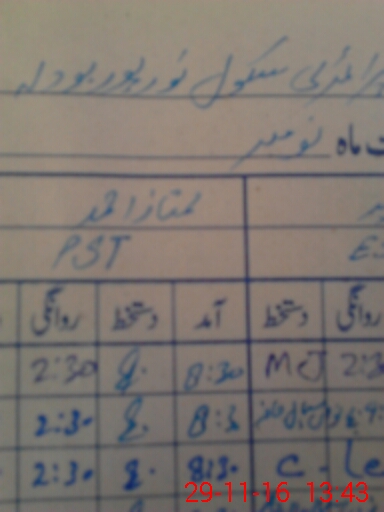 پرائمری سکول نورپور بودلہ
ت ماہ نومبر
ممتاز احمد
PST E
روانگی دستخط آمد دستخط روانگی
8:30 2:30 M 2:3
8:3 2:30
8:30 2:30 C. Le
29-11-16 13:43